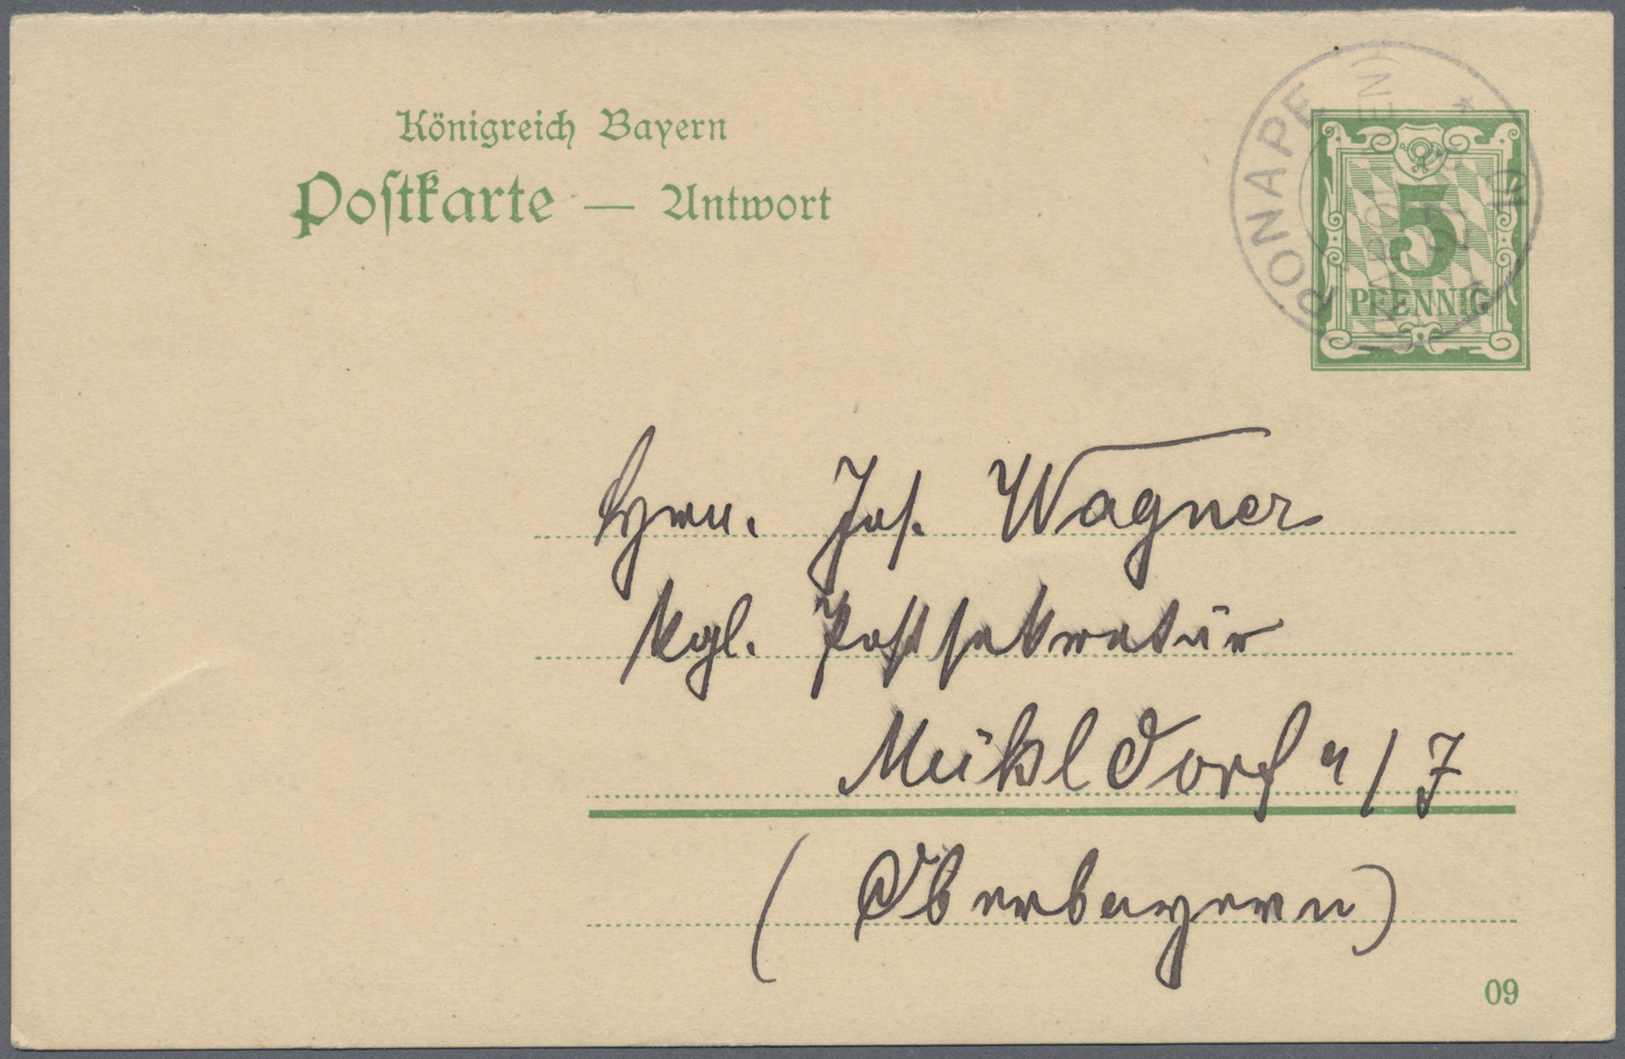 Königreich Bayern
Postkarte — Antwort
PONAPE
5
PFENNIG
Herrn. Jos. Wagner
kgl. Postsekretär
Mühldorf a/J
(Oberbayern)
09